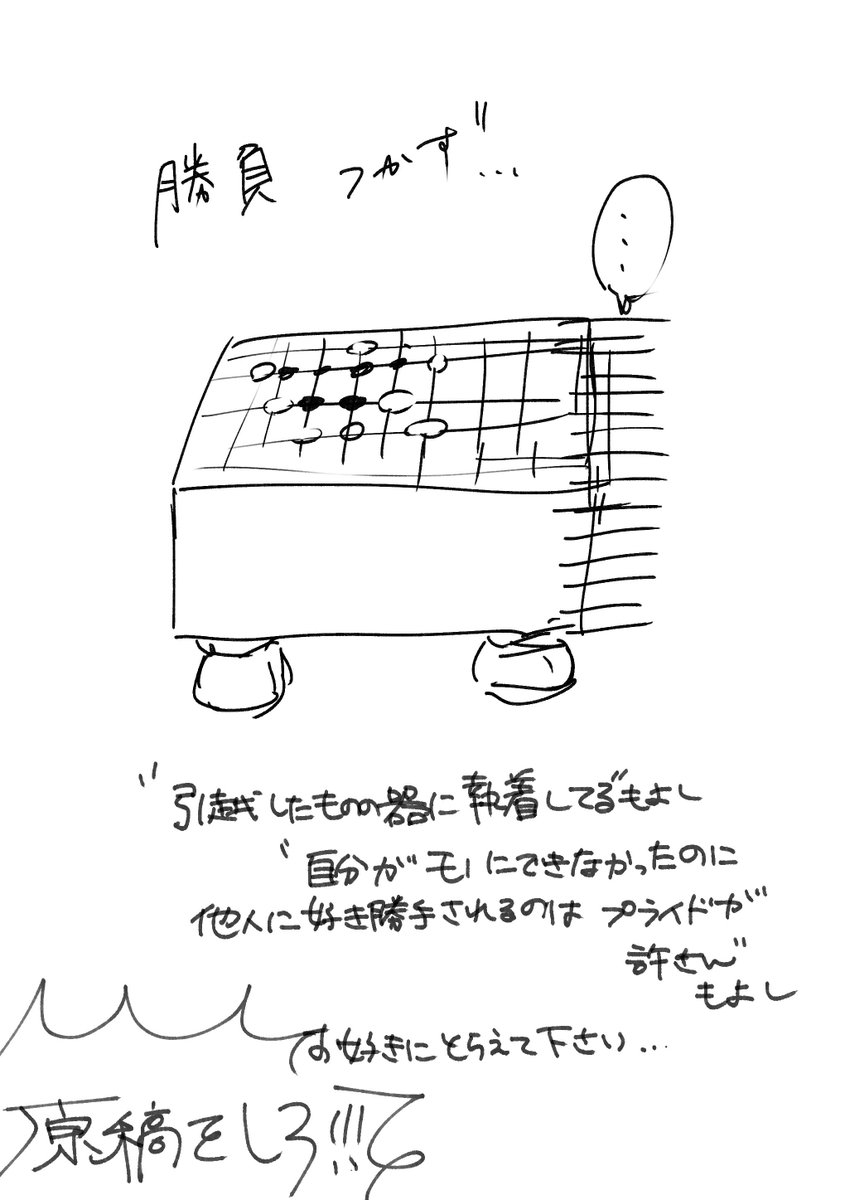 勝負 つかず”...
...
“引越ししたものの器に執着してる”もよし
“自分がモノにできなかったのに
他人に好き勝手されるのは プライドが
許さん”
もよし
お好きにとらえて下さい...
原稿をしろ!!!